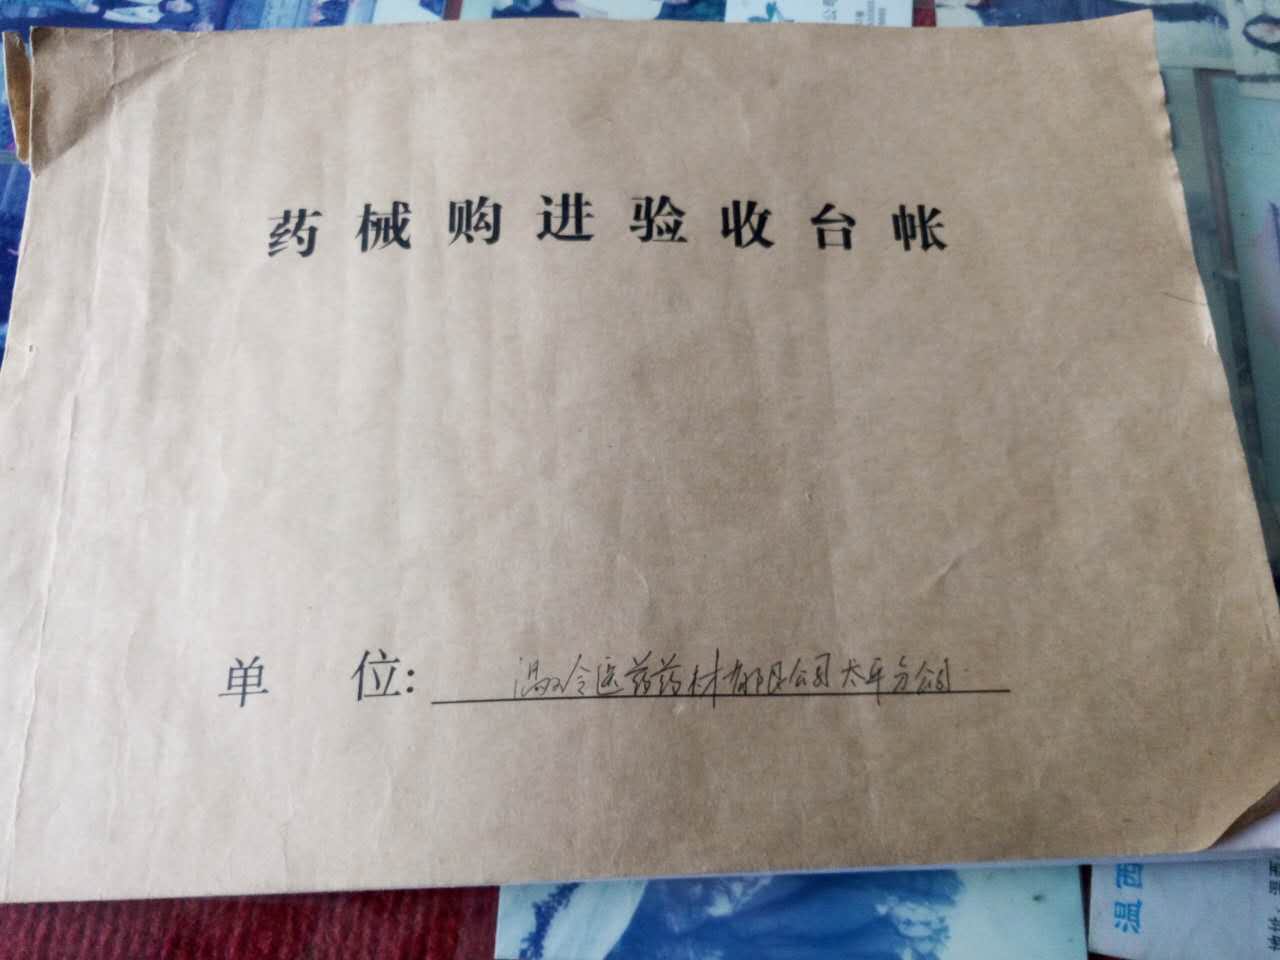 药械购进验收台帐
单 位: 温岭医药药材有限公司太平分公司
温西